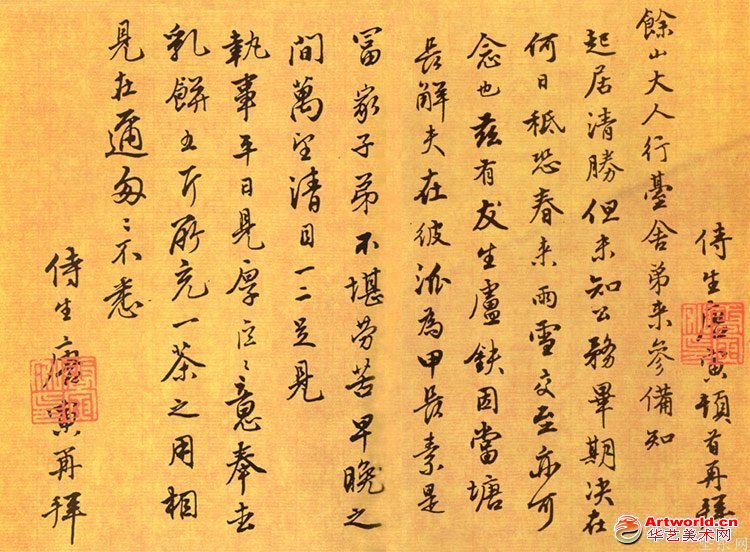 侍生唐寅頓首再拜
餘山大人行臺舍弟来參備知
起居清勝但未知公務畢期决在
何日秪恐春来雨雪交至亦可
念也茲有友生盧鉄因當塘
長解夫在彼泒為甲長素是
冨家子弟不堪劳苦早晚之
間萬望清目一二足見
執事平日見厚之意奉去
乳餅五斤所充一茶之用相
見在邇匆〻不悉
侍生唐寅再拜
Artworld.cn
华艺美术网